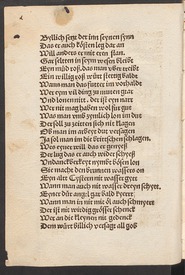 Byllich setz der inn seynen synn
Das er auch kosten leg dar an
Will anders er mit eren stan.
Gar selten in seym wesen bleibt
Eyn müd roß das man yber treibt
Ein willig roß würt stettig baldt
Wann man das futter im vorhalt
Wer eym vil ding zu muten gtar
Und lonen nit, der ist eyn narr
Wer nit mag haben wol für gut
Was man umb zymlich lon im dut
Der sol zu zeiten sich nit klagen
Ob man im arbeyt dut versagen
Ja sol man im die britschen schlagen.
Was eyner will, das er genyeß
Der lug das er auch wider schyeß
Undanckberkeyt nymbt bösen lon
Sie macht den brunnen wassers on
Eyn alte Cystern nit wasser gyt
Wann man auch nit wasser dreyn schytt.
Eyner düre angel gar bald kyrrt
Wann man ir nit mit öl auch schmyert
Der ist nit wirdig grosser schenck
Wer an die kleynen nit gedenck
Dem würt billich versagt all gob